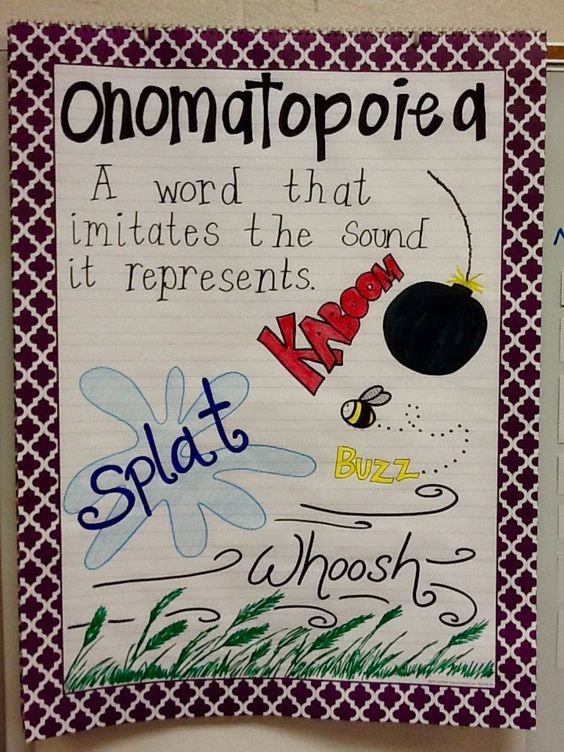 Onomatopoiea
A word that
imitates the sound
it represents.
KABOOM
Splat
BUZZ
Whoosh